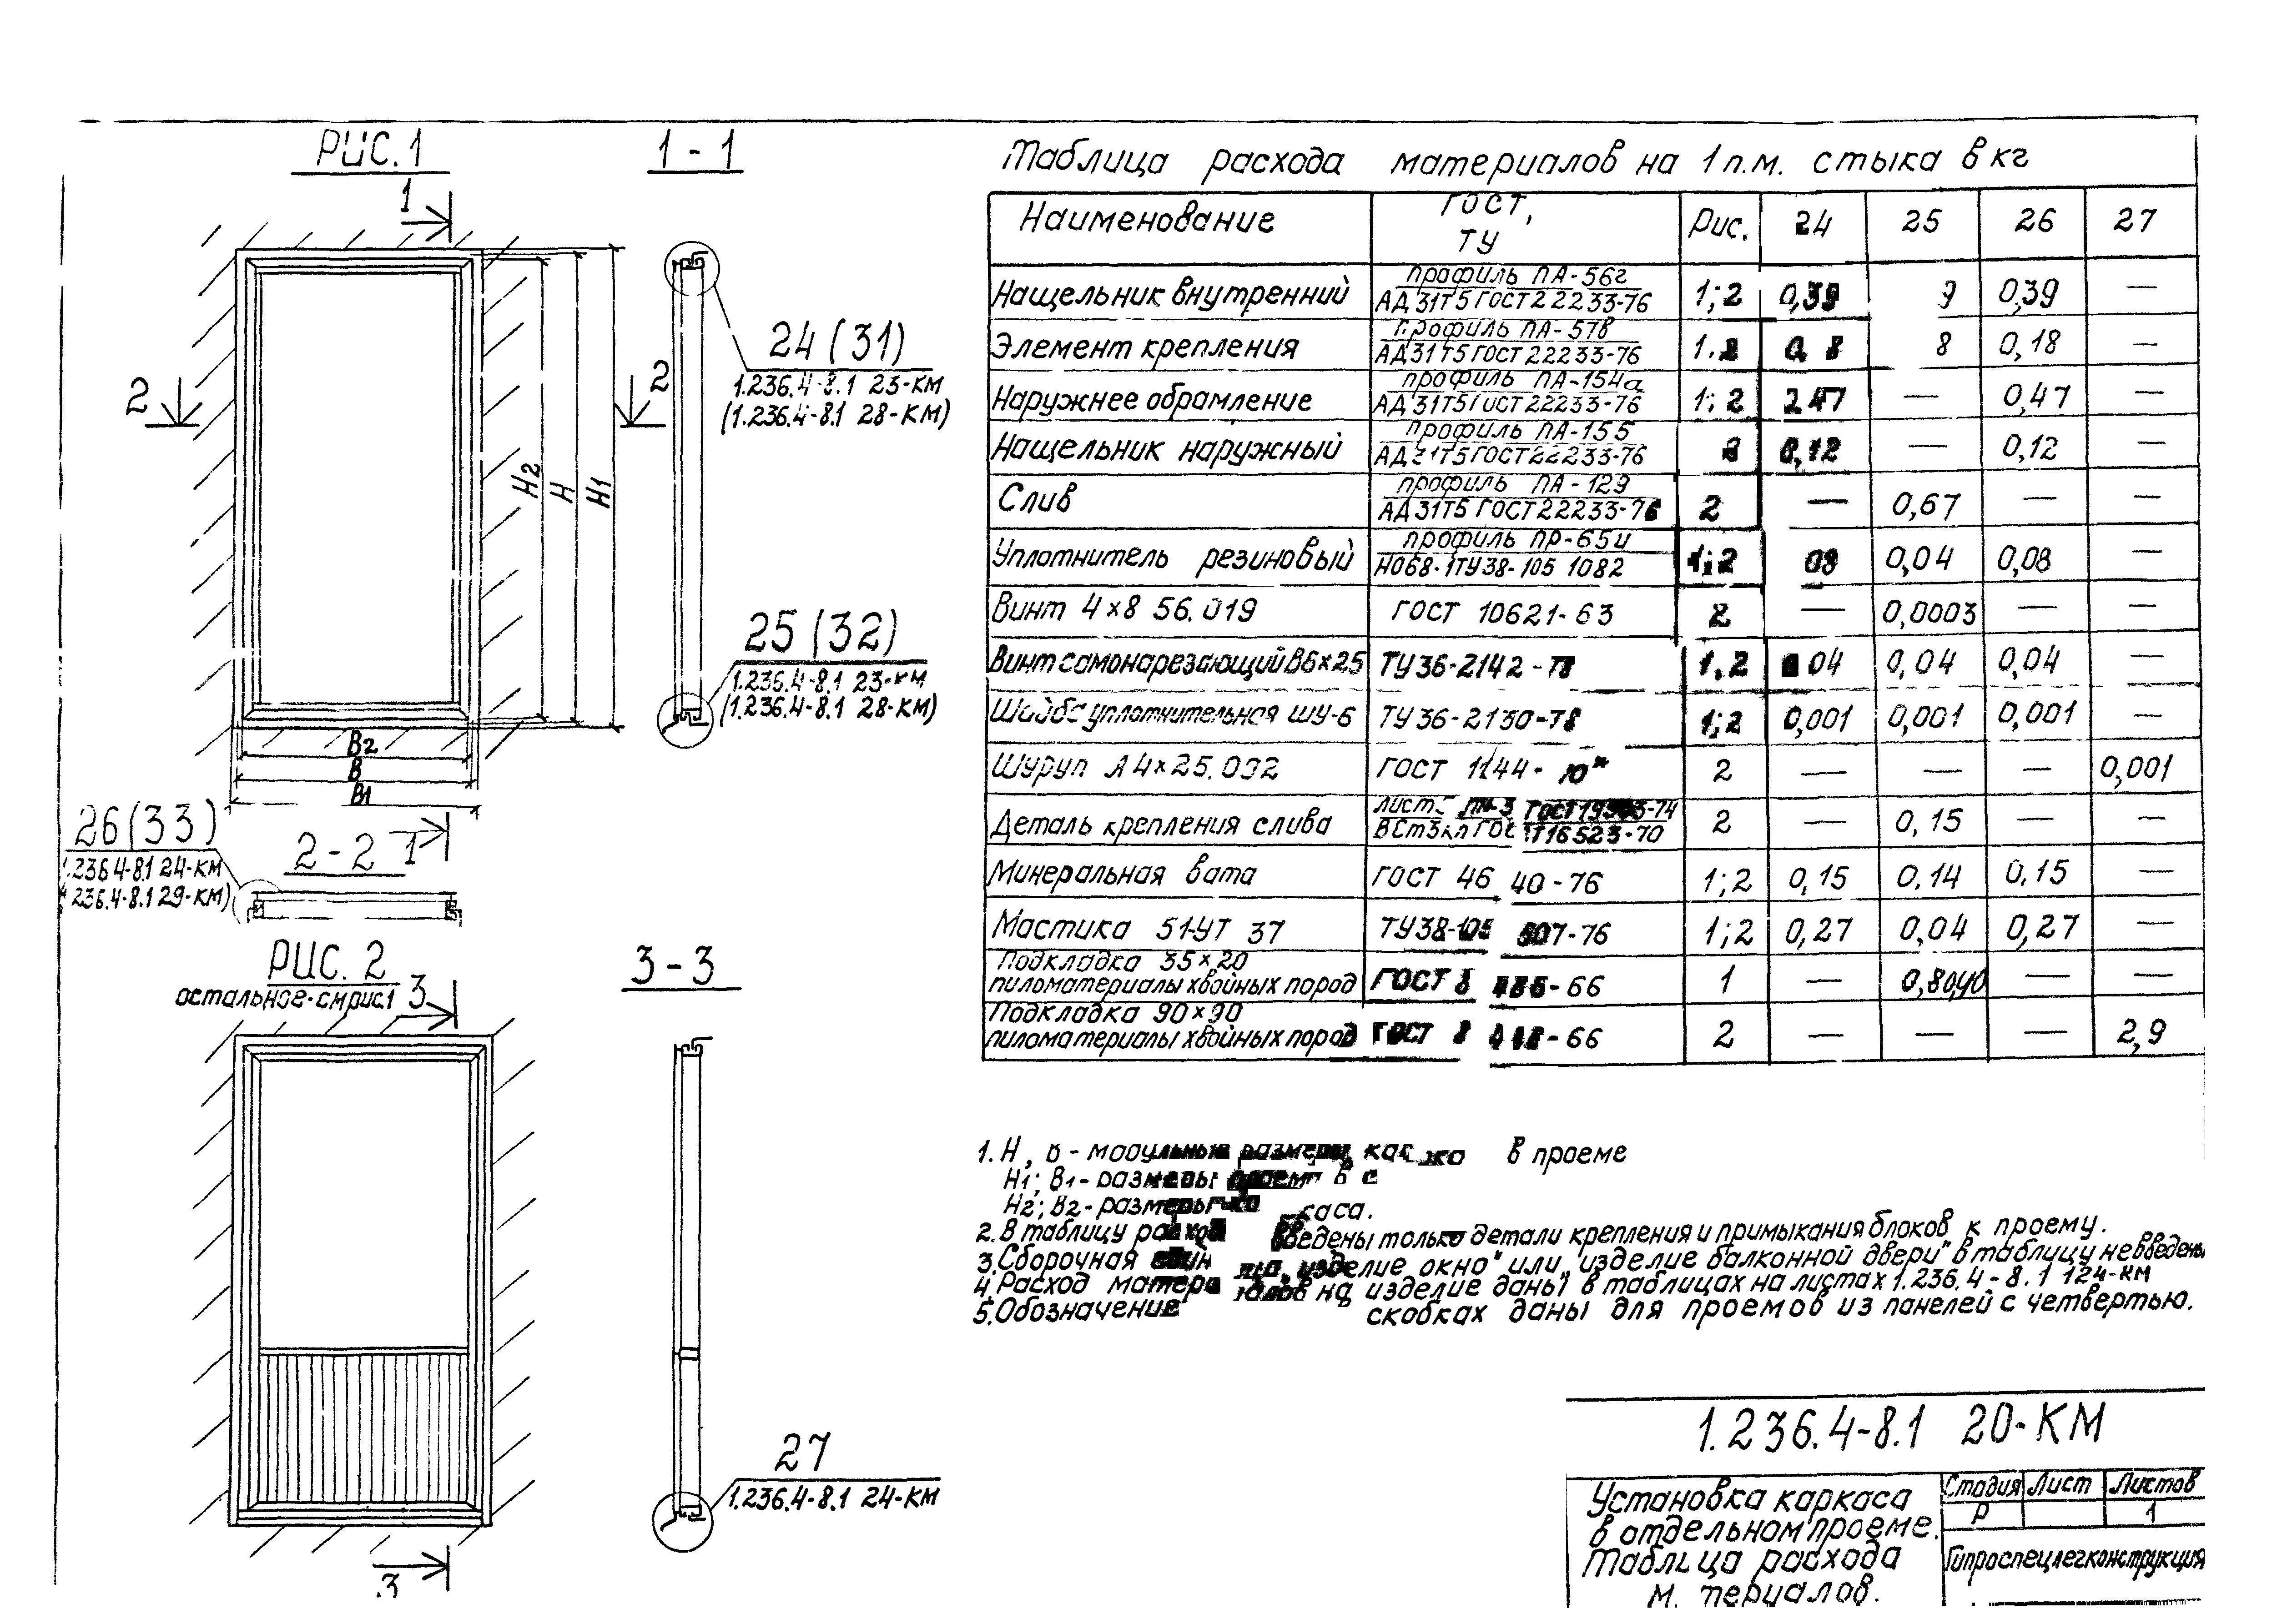 Рис. 1
1
1 - 1
2
2
24 (31)
1.236.4-8.1 23-КМ
(1.236.4-8.1 28-КМ)
Н2
Н
Н1
25 (32)
1.236.4-8.1 23-КМ
(1.236.4-8.1 28-КМ)
В2
В
В1
26 (33)
1.236.4-8.1 24-КМ
1.236.4-8.1 29-КМ)
2-2
1
Рис. 2
остальное-см рис.1
3
3-3
27
1.236.4-8.1 24-КМ
3
Таблица расхода материалов на 1 п.м. стыка в кг
Наименование ГОСТ, ТУ Рис. 24 25 26 27
Нащельник внутренний профиль ПА-56г АД31Т5 ГОСТ 22233-76 1;2 0,39 9 0,39 —
Элемент крепления профиль ПА-57в АД31Т5 ГОСТ 22233-76 1.2 8 8 0,18 —
Наружнее обрамление профиль ПА-154а АД31Т5 ГОСТ 22233-76 1;2 47 — 0,47 —
Нащельник наружный профиль ПА-155 АД31Т5 ГОСТ 22233-76 0,12 — 0,12 —
Слив профиль ПА-129 АД31Т5 ГОСТ 22233-76 2 — 0,67 — —
Уплотнитель резиновый профиль ПР-65и НО68-1ТУ38-105 1082 1;2 08 0,04 0,08 —
Винт 4×8 56.019 ГОСТ 10621-63 2 — 0,0003 — —
Винт самонарезающий В6×25 ТУ36-2142-78 1,2 04 0,04 0,04 —
Шайба уплотнительная ШУ-6 ТУ36-2130-78 1;2 0,001 0,001 0,001 —
Шуруп А4×25.092 ГОСТ 1144- 2 — — — 0,001
Деталь крепления слива лист ГОСТ 19903-74 ВСт3кп ГОСТ 16523-70 2 — 0,15 —
Минеральная вата ГОСТ 46 40-76 1;2 0,15 0,14 0,15 —
Мастика 51-УТ 37 ТУ38-105 507-76 1;2 0,27 0,04 0,27 —
Подкладка 35×20 пиломатериалы хвойных пород ГОСТ 8 486-66 1 — — —
Подкладка 90×90 пиломатериалы хвойных пород ГОСТ 8 486-66 2 — — — 2,9
1. Н, В - модульные размеры в проеме
Н1; В1 - размеры проема в с
Н2; В2 - размеры каса.
2. В таблицу расход введены только детали крепления и примыкания блоков к проему.
3. Сборочная „изделие окно" или „изделие балконной двери" в таблицу не введены
4. Расход материалов на изделие даны в таблицах на листах 1.236.4-8.1 124-КМ
5. Обозначение скобках даны для проемов из панелей с четвертью.
1.236.4-8.1 20-КМ
Установка каркаса
в отдельном проеме.
Таблица расхода
м. териалов.
Стадия Лист Листов
Р 1
Гипроспецлегконструкция